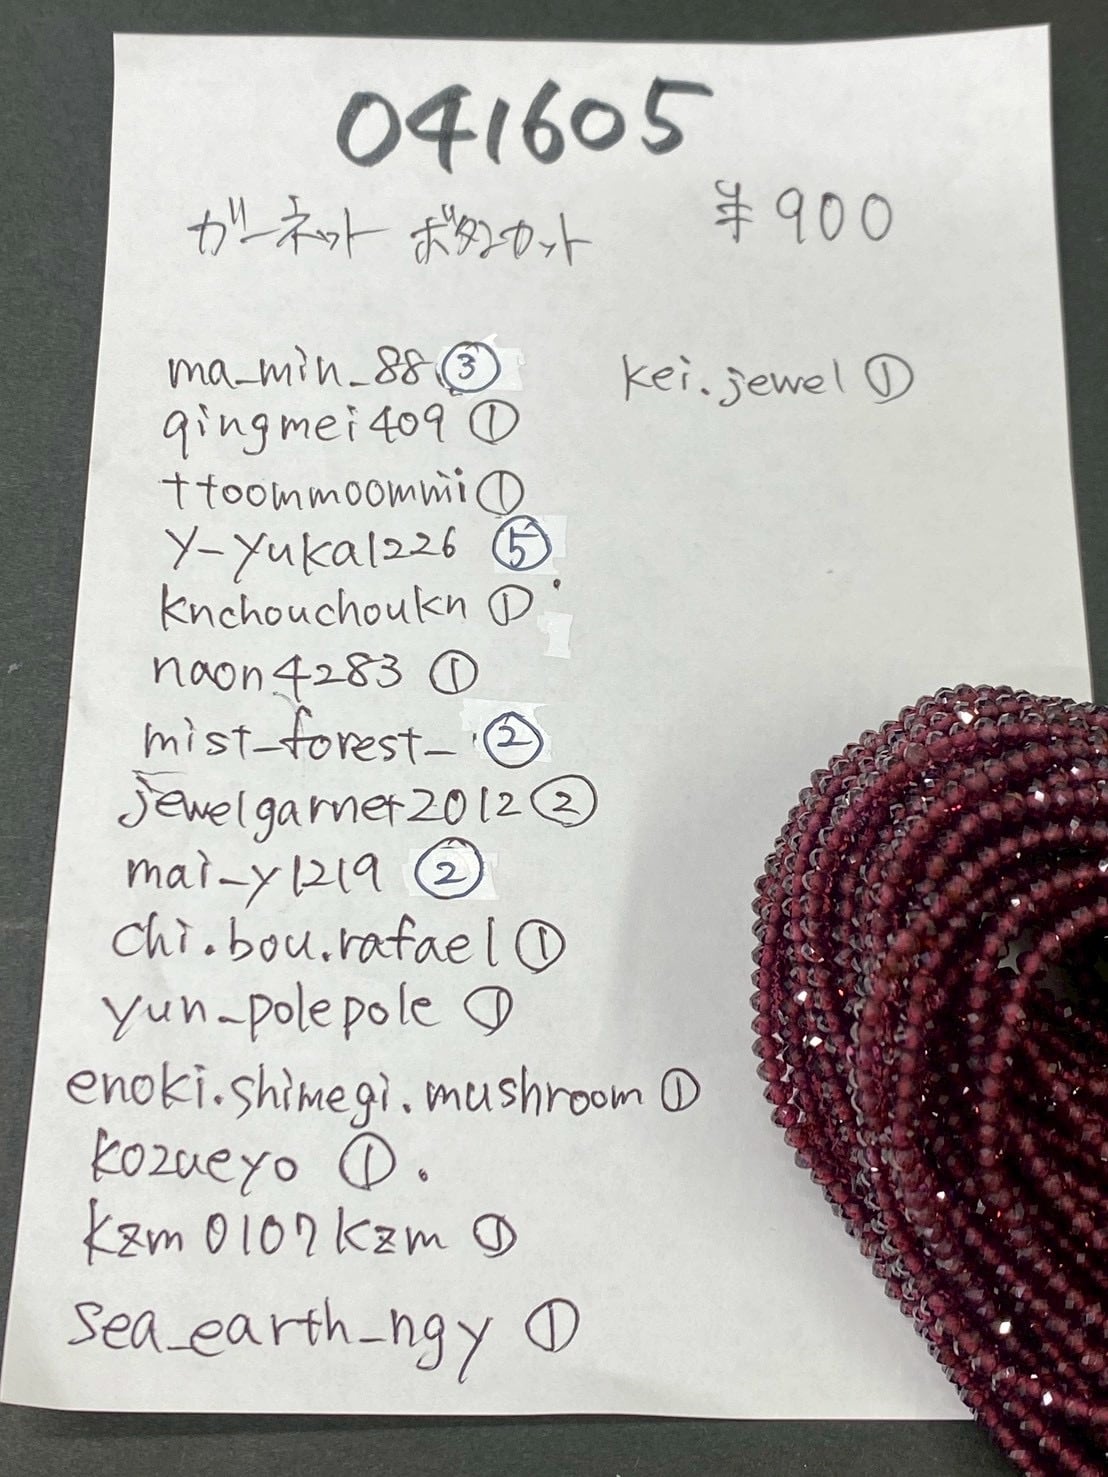 041605
ガーネット ボタンカット ¥900
ma_min_88 ③
qingmei409 ①
ttoommoommii ①
y-yuka1226 ⑤
knchouchoukn ①
naon4283 ①
mist_forest_ ②
jewelgarnet2012 ②
mai_y1219 ②
chi.bou.rafael ①
yun_polepole ①
enoki.shimegi.mushroom ①
kozueyo ①.
kzm0107kzm ①
sea_earth_ngy ①
kei.jewel ①